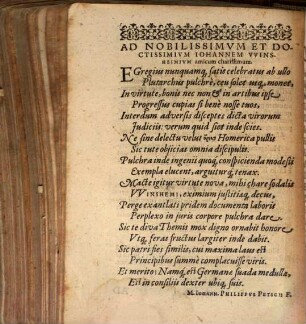 AD NOBILISSIMVM ET DO-
CTISSIMVM IOHANNEM VVINS-
HEIMIVM amicum charissimum.
EGregius nunquamq, satis celebratus ab ullo
Plutarchus pulchrè, ceu solet usq, monet,
In virtute, bonis nec non & in artibus ipse
Progressus cupias si benè nosse tuos.
Interdum adversis disceptes dicta virorum
Iudiciis: verum quid siet inde scies.
Ne sine delectu velut Homerica pustis
Sic tute objicias omnia discipulis.
Pulchra inde ingenii quoq, conspicienda modesti
Exempla elucent, arguiturq, tenax.
Macte igitur virtute nova, mihi chare sodalis
VVINSHEMI, eximium justitiæq, decus,
Perge exantlati pridem documenta laboris
Perplexo in juris corpore pulchra dare.
Sic te diva Themis mox digno ornabit honore
Vtq, feras fructus largiter inde dabit.
Sic patri fies similis, cui maxima laus est
Principibus summè complacuisse viris.
Et meritò: Namq, est Germanæ suada medulla,
Est in consiliis dexter ubiq, suis.
M. IOHANN. PHILIPPVS PETSCH F.